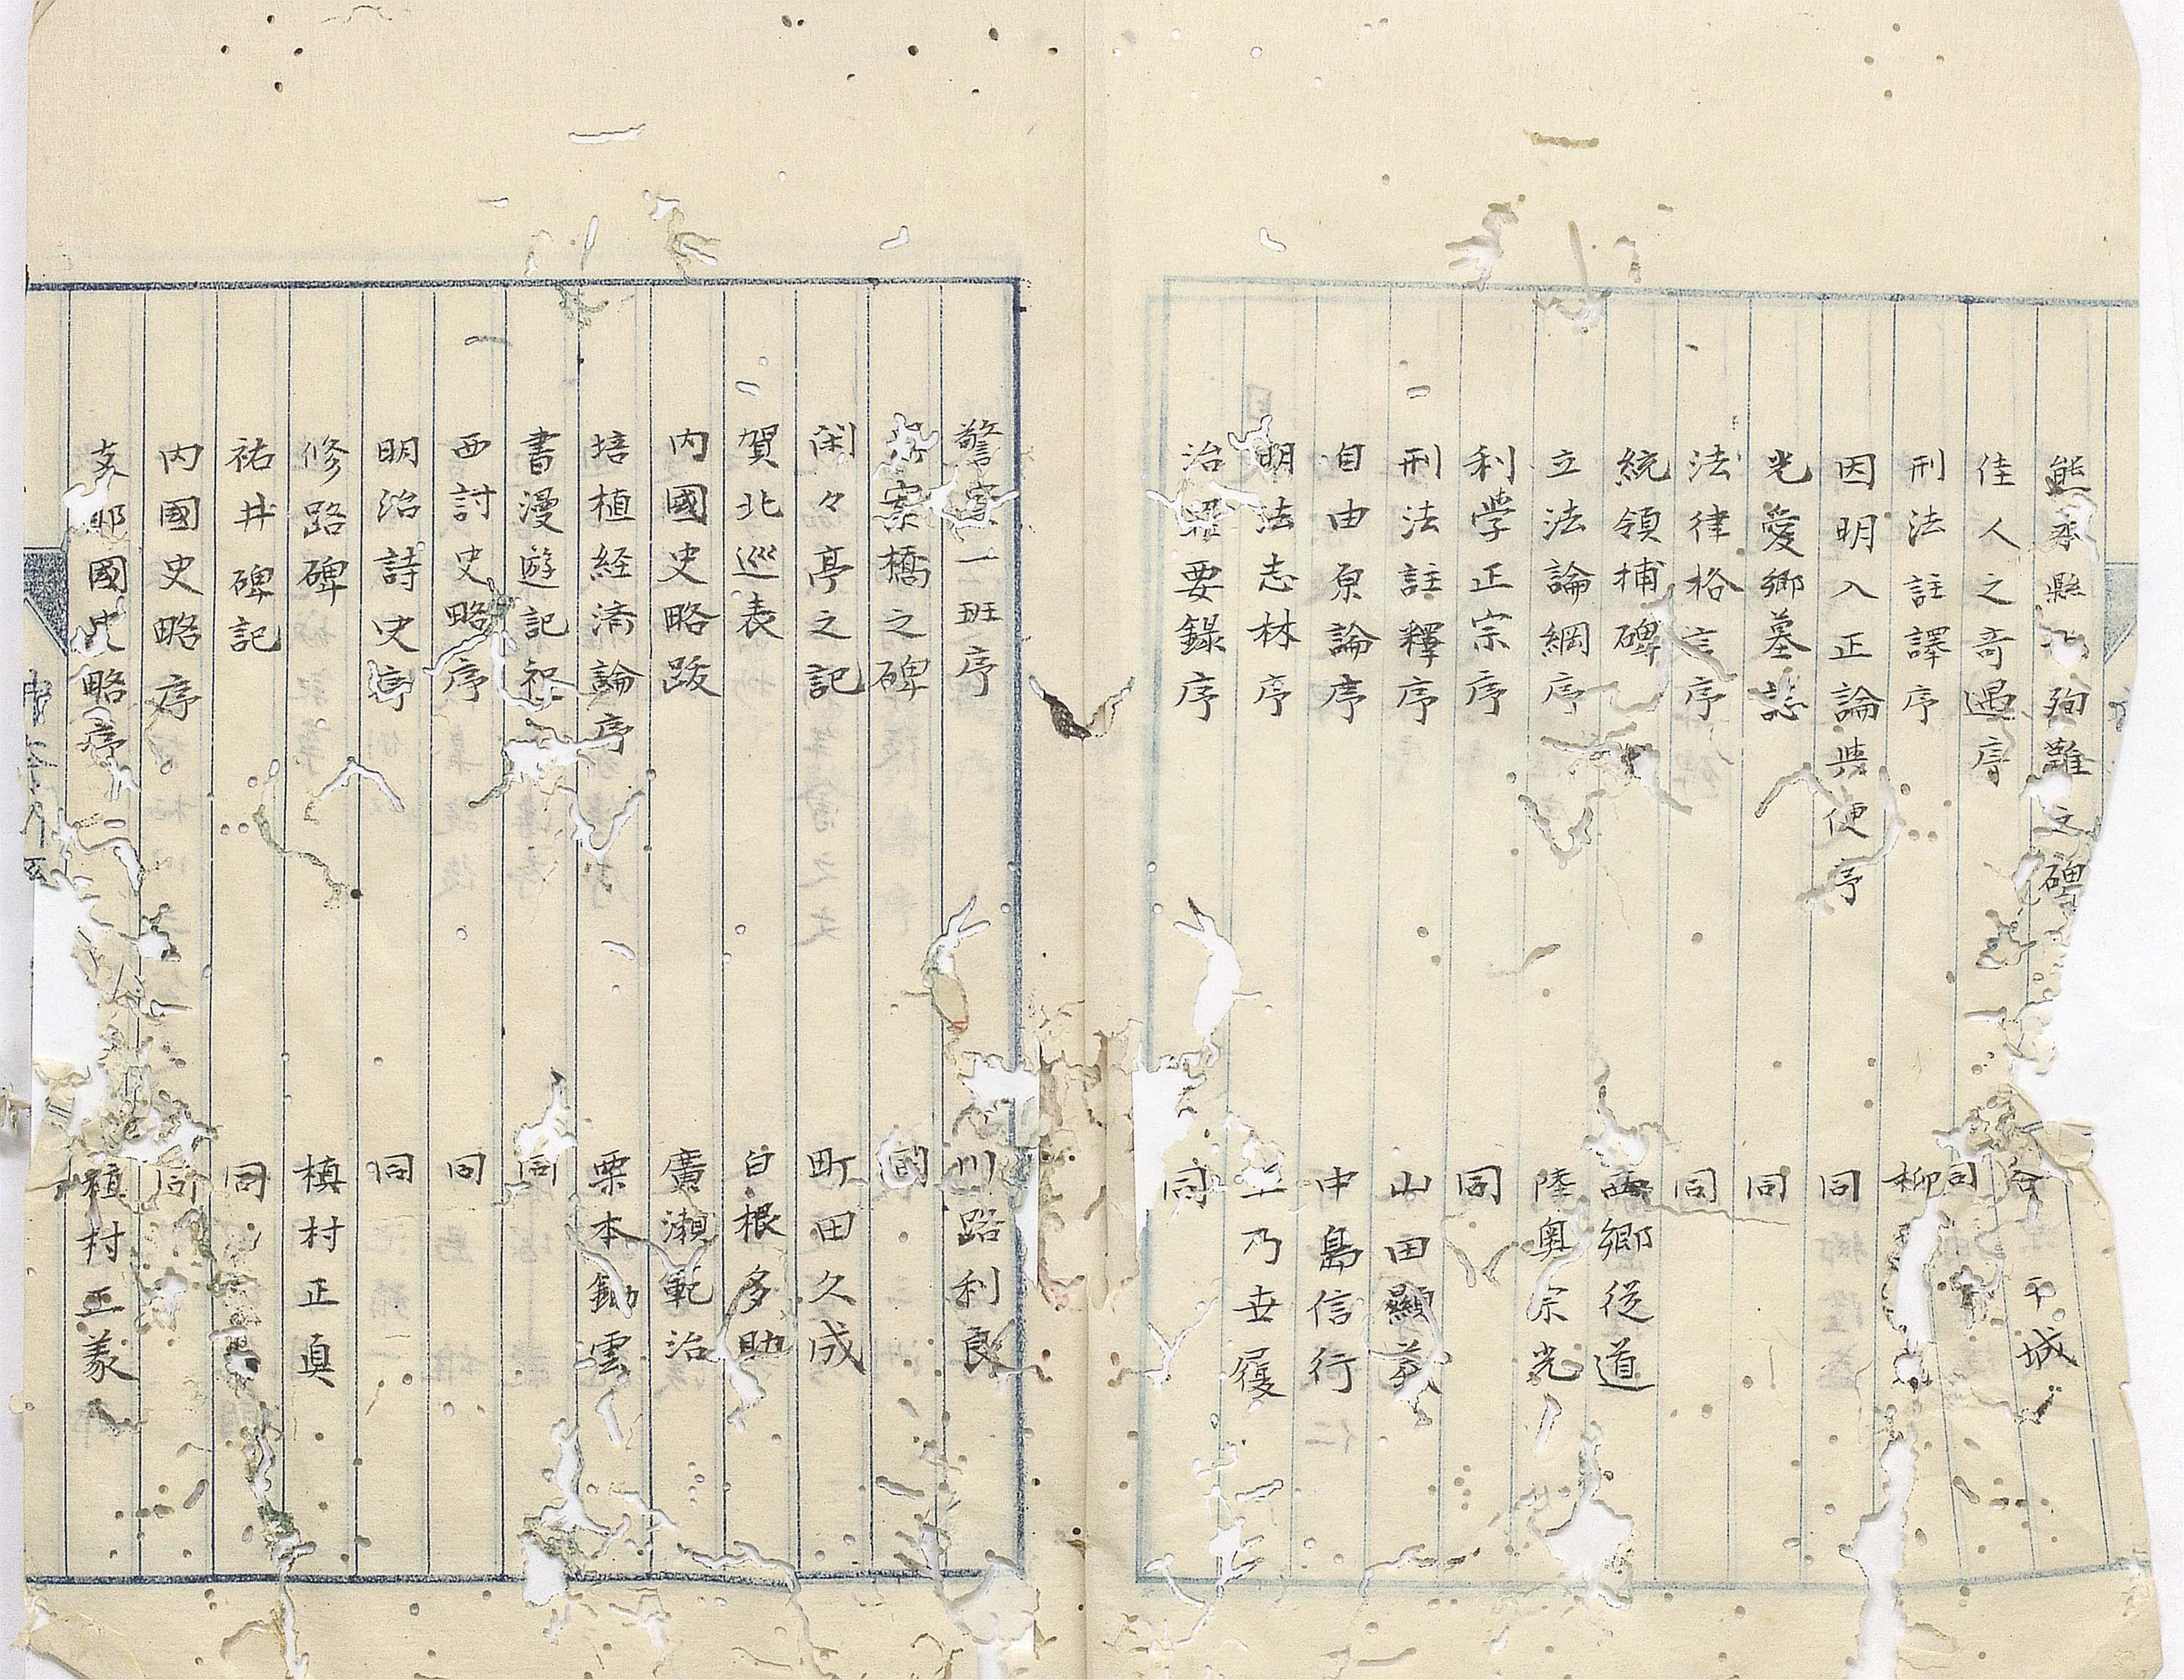 熊本縣 殉難之碑 谷干城
佳人之奇遇序 同
刑法註譯序 柳
因明入正論典便序 同
光愛郷墓誌 同
法律格言序 同
統領捕碑 西郷従道
立法論綱序 陸奥宗光
利学正宗序 同
刑法註釋序 山田顯義
自由原論序 中島信行
明法志林序 玉乃世履
治罪要錄序 同
警察一班序 川路利良
案橋之碑 同
閑々亭之記 町田久成
賀北巡表 白根多助
内國史略跋 廣瀬範治
培植経済論序 栗本鋤雲
書漫遊記 同
西討史略序 同
明治詩史序 同
修路碑 槙村正直
祐井碑記 同
内國史略序 同
支那國史略序 植村正義